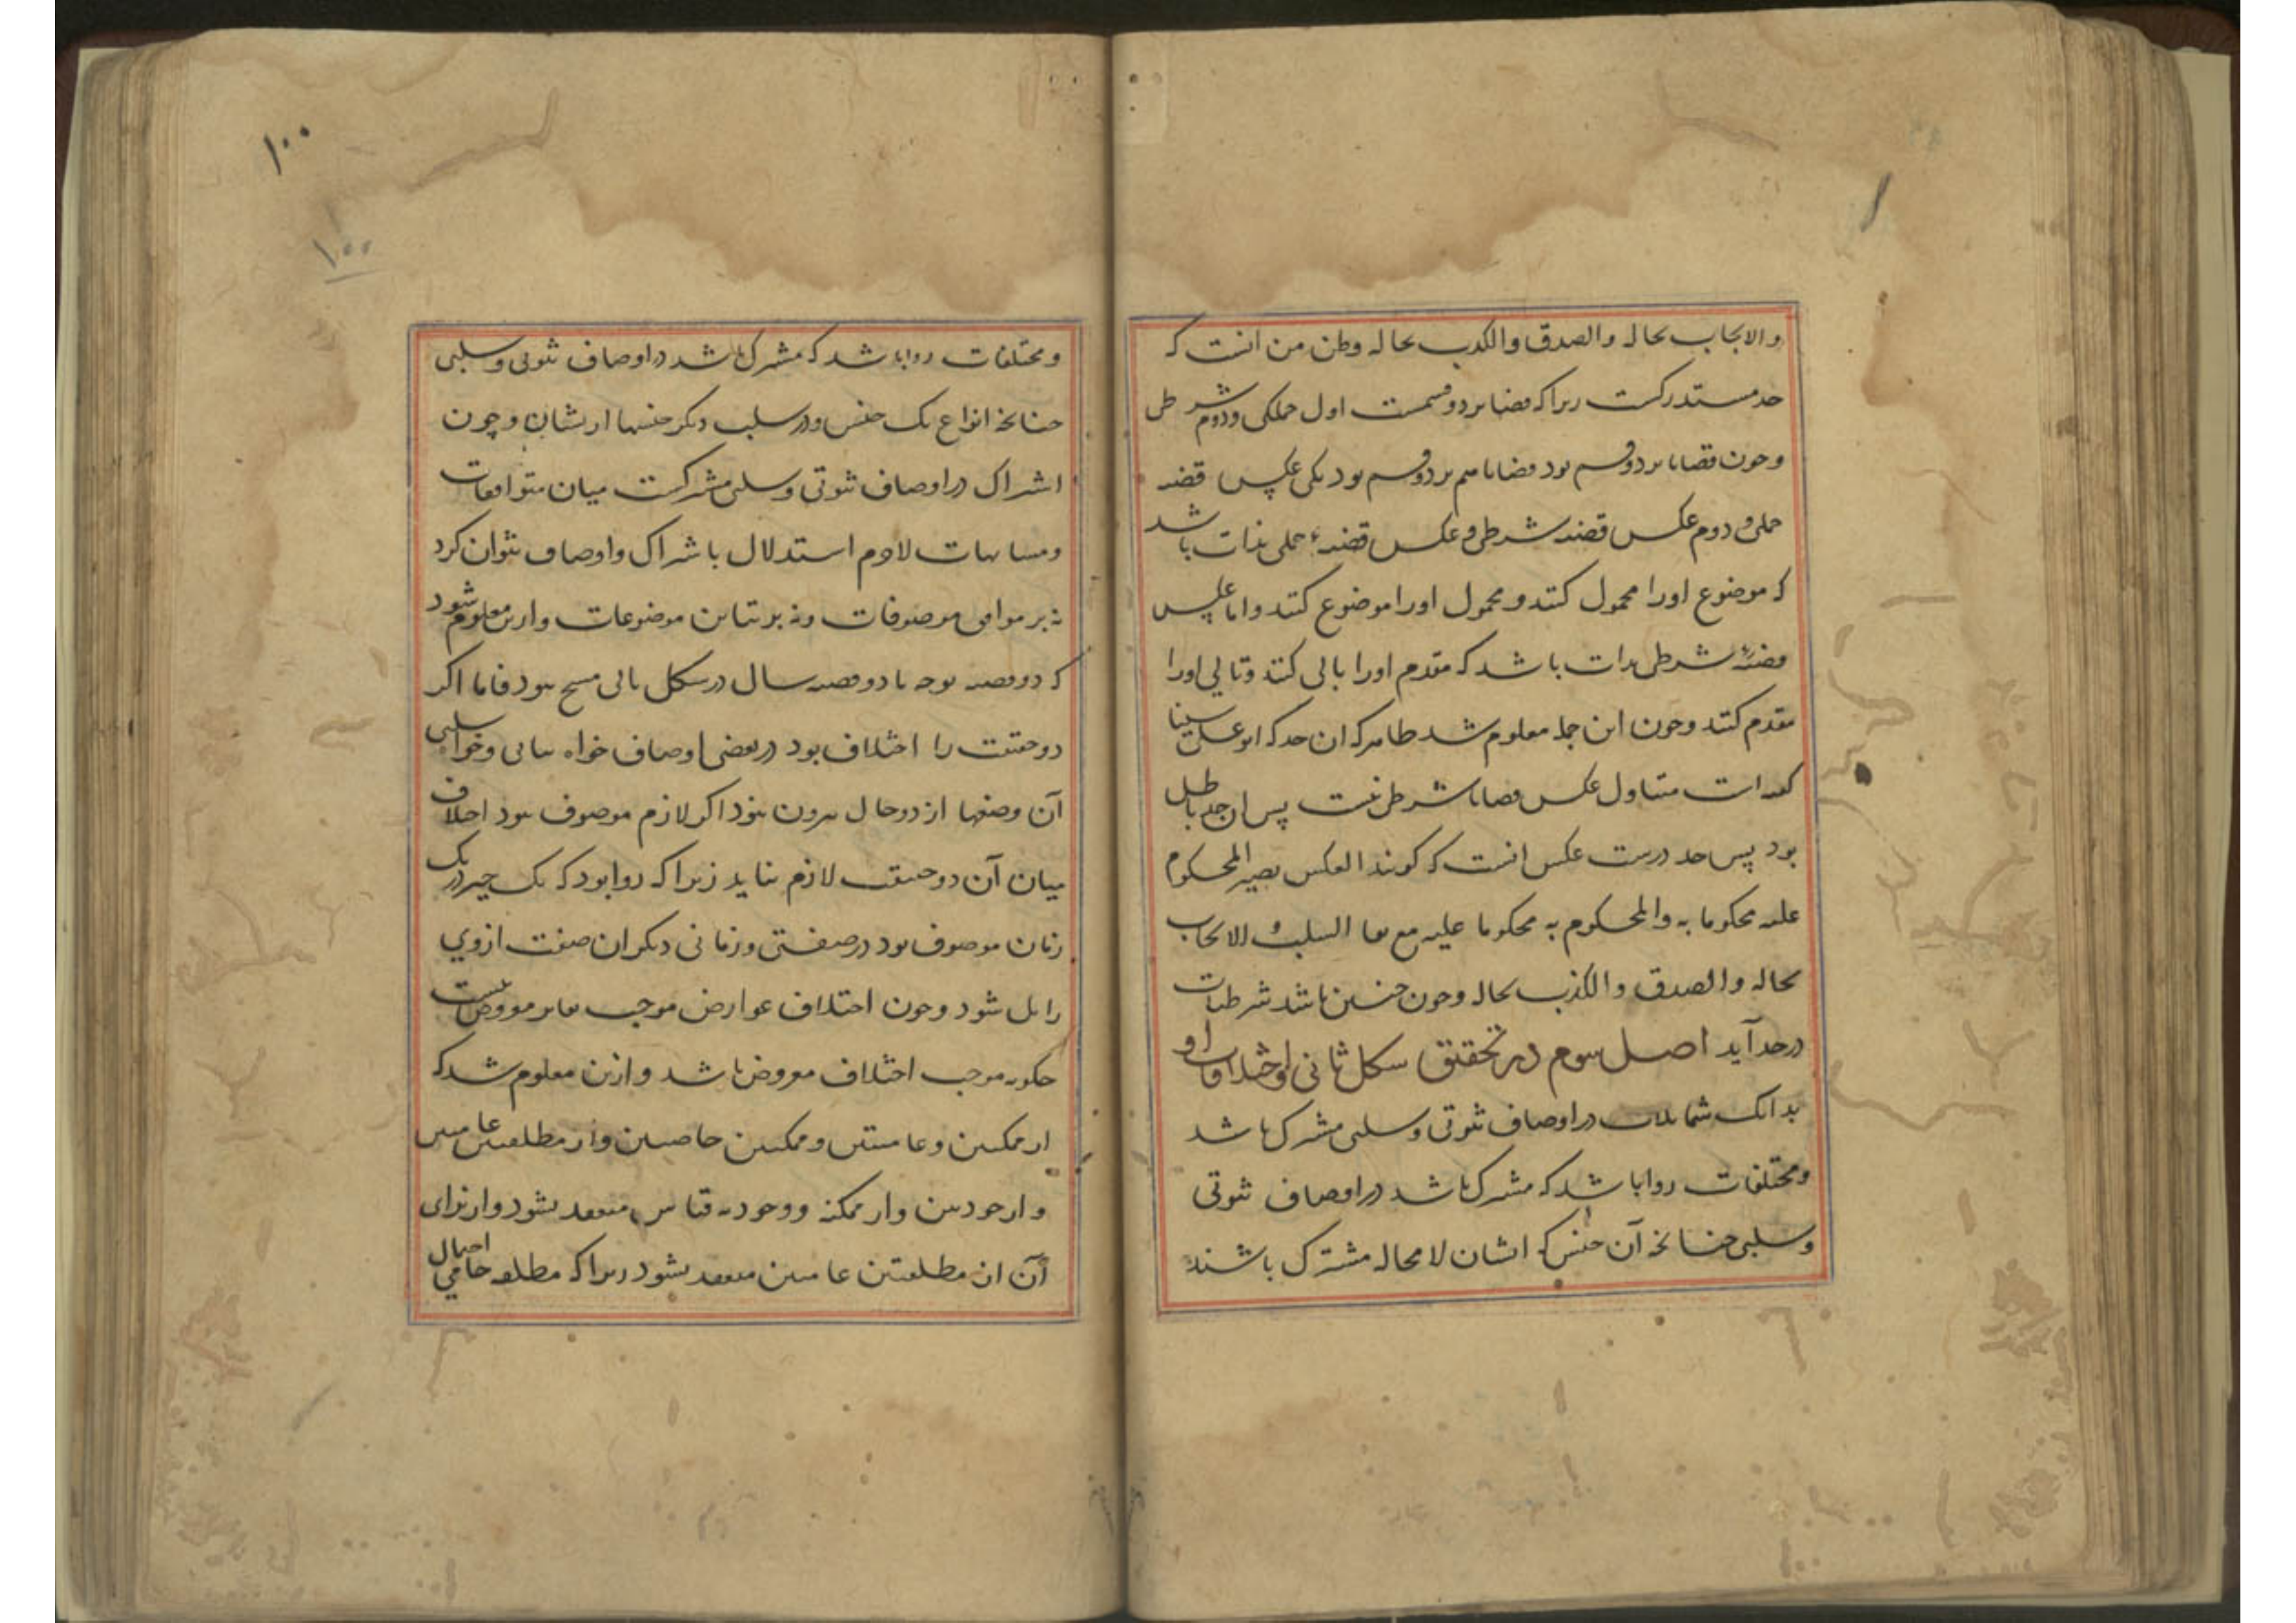 والایجاب بحاله والصدق والکذب بحاله وظن من انست که
حد مستدرکست زیرا که قضایا بر دو قسمست اول حملی ودوم شرطی
وچون قضایا بر دو قسم بود قضایا هم بر دو قسم بود یکی عکس قضیه
حملی و دوم عکس قضیه شرطی و عکس قضیهٔ حملی بذات باشد
که موضوع اورا محمول کنند و محمول اورا موضوع کنند واما عکس
قضیهٔ شرطی بدات باشد که مقدم اورا تالی کنند وتالی اورا
مقدم کنند وچون این جمله معلوم شد ظاهر که ان حد که ابوعلی سینا
کفته است متناول عکس قضایا شرطی نیست پس ان حد باطل
بود پس حد درست عکس انست که کویند العکس تصییر المحکوم
علیه محکوما به والمحکوم به محکوما علیه مع بقا السلب والایجاب
بحاله والصدق والکذب بحاله وچون چنین باشد شرطیات
در حد آید اصل سوم در تحقیق شکل ثانی واختلافات او
بدانک متماثلات در اوصاف ثبوتی وسلبی مشترک باشد
ومختلفات روا باشد که مشترک باشد در اوصاف ثبوتی
وسلبی چنانچه آن جنس که ایشان لا محاله مشترک باشند
۱۰۰
۱۰۰
ومختلفات روا باشد که مشترک باشد در اوصاف ثبوتی وسلبی
چنانچه انواع یک جنس ودر سلب دیکر جنسها از ایشان و چون
اشتراک در اوصاف ثبوتی وسلبی مشترکست میان متوافقات
ومتباینات لاجرم استدلال باشتراک واوصاف نتوان کرد
نه بر توافق موصوفات ونه بر تباین موضوعات وازین معلوم شود
که دو قضیه موجبه یا دو قضیه سالبه در شکل ثانی منتج نبود فاما اکر
دو حقیقت را اختلاف بود در بعضی اوصاف خواه ثباتی وخواه سلبی
آن وصفها از دو حال بیرون نبود اکر لازم موصوف نبود اختلاف
میان آن دو حقیقت لازم نیاید زیرا که روا بود که یک چیز در یک
زمان موصوف بود در صفتی وزمانی دیکر ان صفت ازوی
زایل شود وچون اختلاف عوارض موجب تغایر معروض نیست
چکونه موجب اختلاف معروض باشد وازین معلوم شد که
از ممکنین وعامیتین وممکنین خاصیین واز مطلقتین عامیین
واز وجودیین واز ممکنه ووجودیه قیاس منعقد نشود واز برای
آن از مطلقتین عامیین منعقد نشود زیرا که مطلقه عامی احتمال